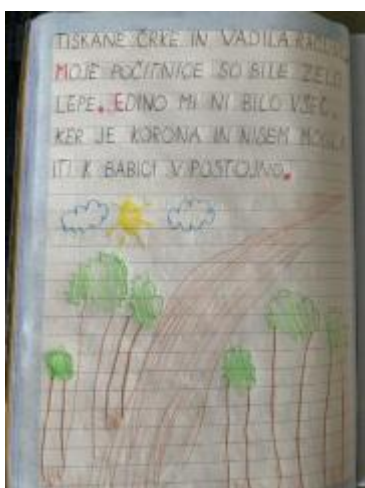 TISKANE ČRKE IN VADILA RAČUNE.
MOJE POČITNICE SO BILE ZELO
LEPE. EDINO MI NI BILO VŠEČ,
KER JE KORONA IN NISEM MOGLA
ITI K BABICI V POSTOJNO.